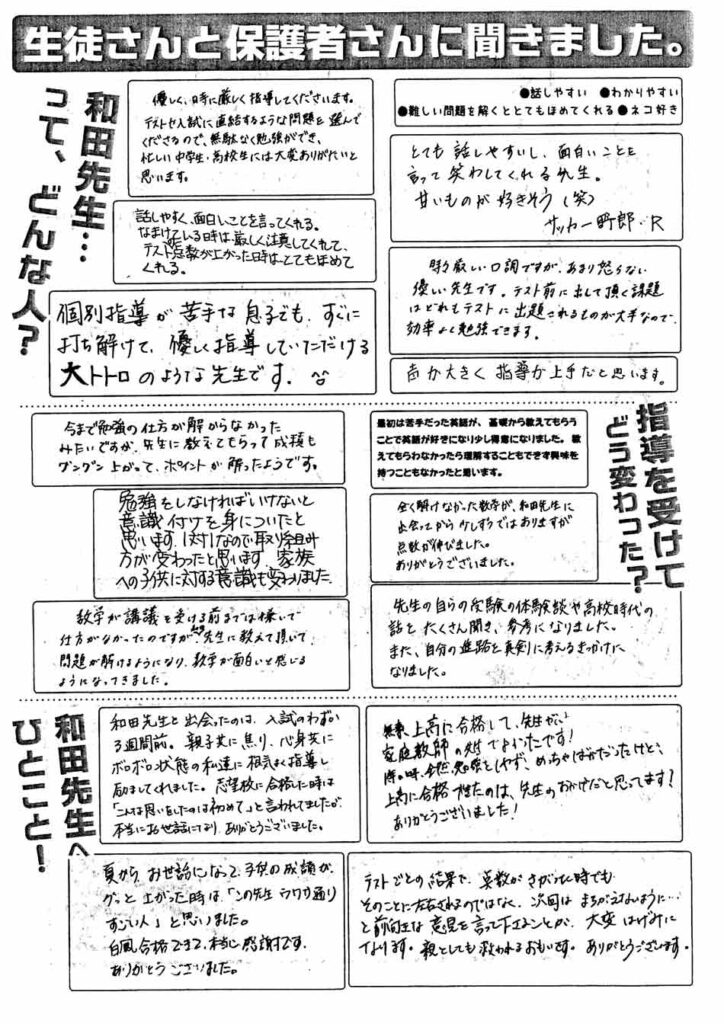 生徒さんと保護者さんに聞きました。
和田先生…
って、どんな人？
優しく、時に厳しく指導してくださいます。
テストや入試に直結するような問題を選んで
くださるので、無駄なく勉強ができ、
忙しい中学生・高校生には大変ありがたいと
思います。
●話しやすい ●わかりやすい
●難しい問題を解くととてもほめてくれる ●ネコ好き
とても話しやすいし、面白いことを
言って笑わしてくれる先生。
甘いものが好きそう（笑）
サッカー野郎・R
話しやすく、面白いことを言ってくれる。
なまけている時は厳しく注意してくれて、
テストの点数が上がった時はとてもほめて
くれる。
時々厳しい口調ですが、あまり怒らない
優しい先生です。テスト前に出して頂く課題
はどれもテストに出題されるものが大半なので、
効率よく勉強できます。
個別指導が苦手な息子でも、すぐに
打ち解けて、優しく指導していただける
大トトロのような先生です。^^
声が大きく指導が上手だと思います。
指導を受けて
どう変わった？
今まで勉強の仕方が解からなかった
みたいですが、先生に教えてもらって成績も
グングン上がって、ポイントが解ったようです。
最初は苦手だった英語が、基礎から教えてもらう
ことで英語が好きになり少し得意になりました。教
えてもらわなかったら理解することもできず興味を
持つこともなかったと思います。
勉強をしなければいけないと
意識付けを身についたと
思います。1対1なので取り組み
方が変わったと思います。家族
への子供に対する意識も変わりました。
全く解けなかった数学が、和田先生に
出会ってから少しずつではありますが
点数が伸びました。
ありがとうございました。
数学が講義を受ける前までは嫌いで
仕方がなかったのですが先生に教えて頂いて、
問題が解けるようになり、数学が面白いと感じる
ようになってきました。
先生の自らの受験の体験談や高校時代の
話をたくさん聞き、参考になりました。
また、自分の進路を真剣に考えるきっかけに
なりました。
和田先生へ
ひとこと！
和田先生と出会ったのは、入試のわずか
3週間前。親子共に焦り、心身共に
ボロボロ状態の私達に根気よく指導し
励ましてくれました。志望校に合格した時は
「こんな思いをしたのは初めて」と言われてましたが、
本当にお世話になり、ありがとうございました。
無事、上高に合格して、先生が
家庭教師の先生でよかったです！
めちゃばかだったけど、
上高に合格できたのは、先生のおかげだと思ってます！
ありがとうございました！
夏から、お世話になって、子供の成績が、
グッと上がった時は「この先生ウワサ通り
すごい人」と思いました。
白鳳合格できて、本当に感謝です。
ありがとうございました。
テストごとの結果で、点数がさがった時でも
そのことに左右されるのではなく、次回はまちがえないように…
と前向きな意見を言って下さることが、大変はげみに
なります。親としても救われるおもいです。ありがとうございます。